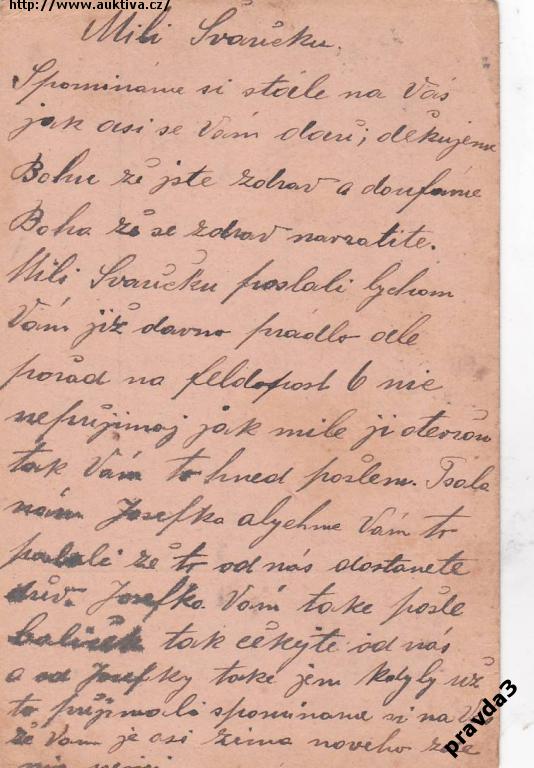 http://www.auktiva.cz/
Mili Švaučku.
Spomináme si stále na Vás
jak asi se Vám daří, děkujeme
Bohu žě jste zdrav a doufáme
Boha žě se zdrav navratite.
Mili Svaučku poslali bychom
Vám již davno prádlo ale
pořád na feldpost 6 nic
nepřijimaj jak mile ji otevřou
tak Vám to hned pošlem. Psala
nám Josefka abychme Vám to
poslali žě to od nás dostanete
dřív. Josefka Vám take pošle
baliček tak čěkejte od nás
a od Josefky take jen kdyby už
to přijimali spominame si na V
žě Vam je asi zima noveho zde
nic neni
pravda3